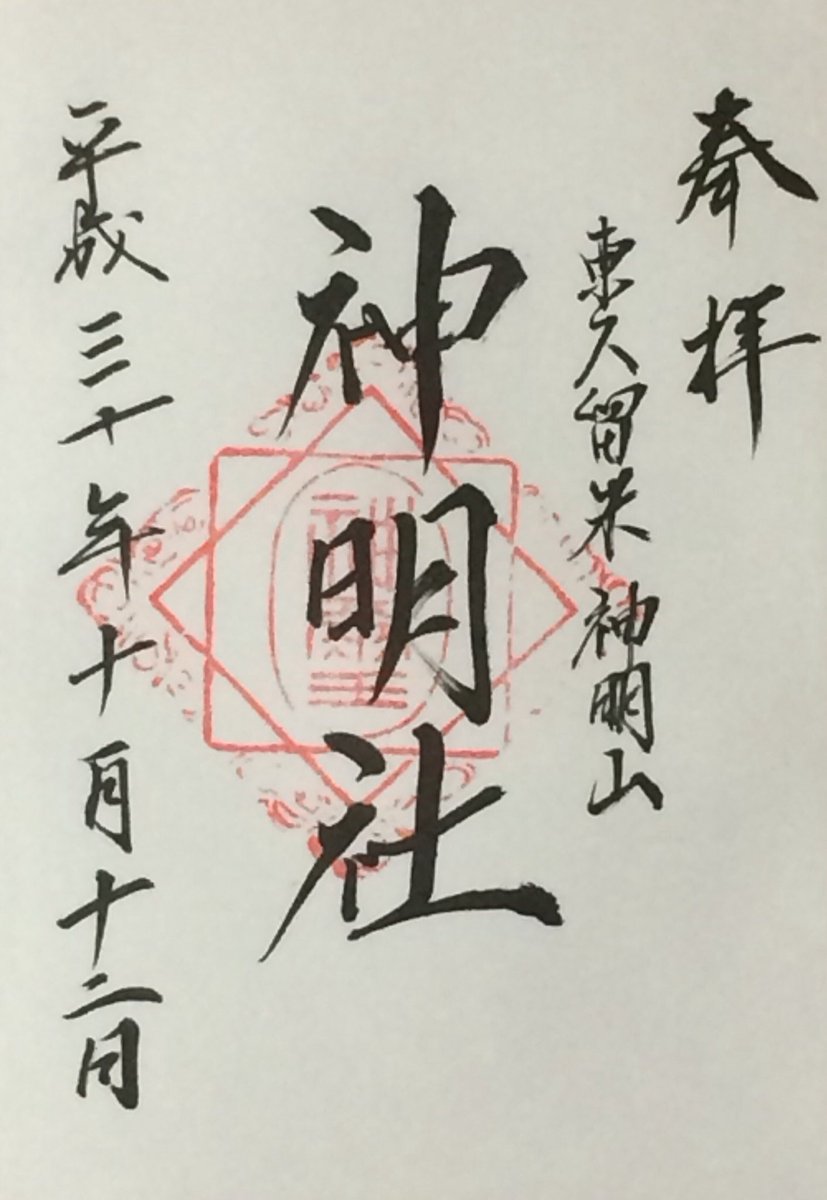 奉拝
東久留米 神明山
神明社
平成三十年十月十二日